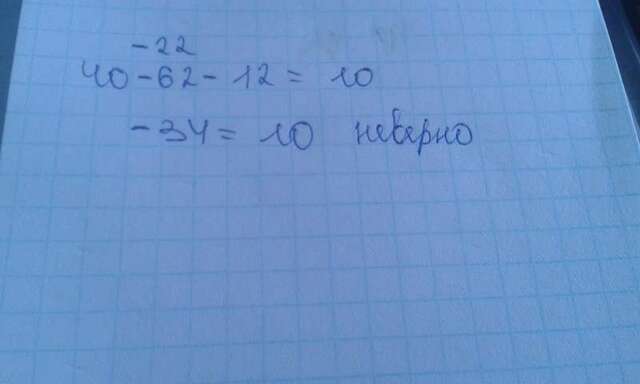 -22
40-62-12=10
-34=10 неверно